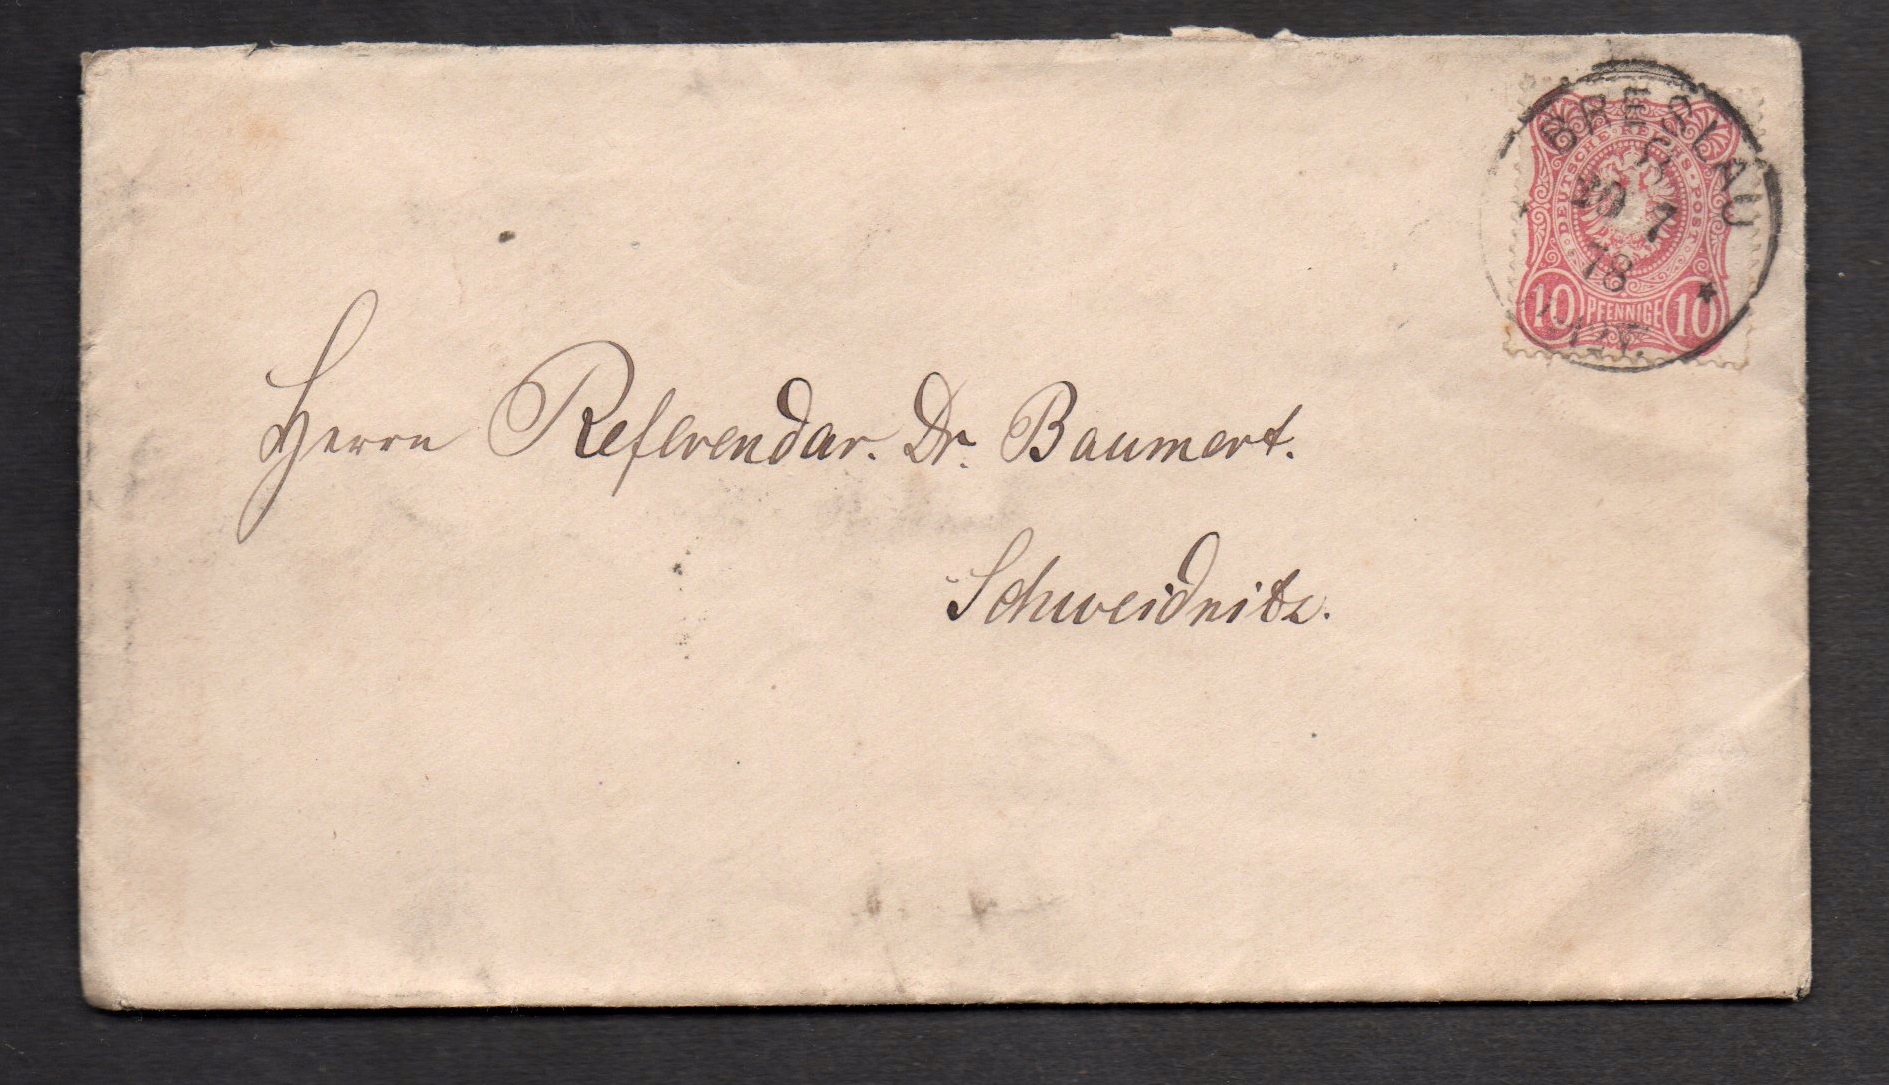 BRESLAU
20 7
78
DEUTSCHE REICHS-POST
10 PFENNIGE 10
Herrn Referendar. Dr. Baumert.
Schweidnitz.